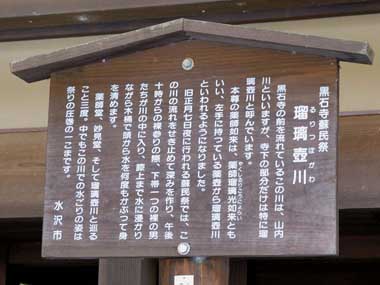 黒石寺蘇民祭
瑠璃壺川
るりつぼがわ
黒石寺の前を流れているこの川は、山内
川といいますが、寺下の部分だけは特に瑠
璃壺川と呼んでいます。
本尊の薬師如来は、薬師瑠璃光如来とも
やくしるりこうにょらい
いい、左手に持っている薬壺から瑠璃壺川
といわれるようになりました。
旧正月七日夜に行われる蘇民祭では、こ
の川の流れをせき止めて深みを作り、午後
十時からの裸参りの際、下帯一つの裸の男
たちが川の中に入り、踏上まで水に浸かり
ながら木桶で頭から水を何度もかぶって身
を清めます。
薬師堂、妙見堂、そして瑠璃壺川と巡る
こと三度、中でもこの川での水ごりの姿は
祭りの圧巻の一こまです。
水沢市